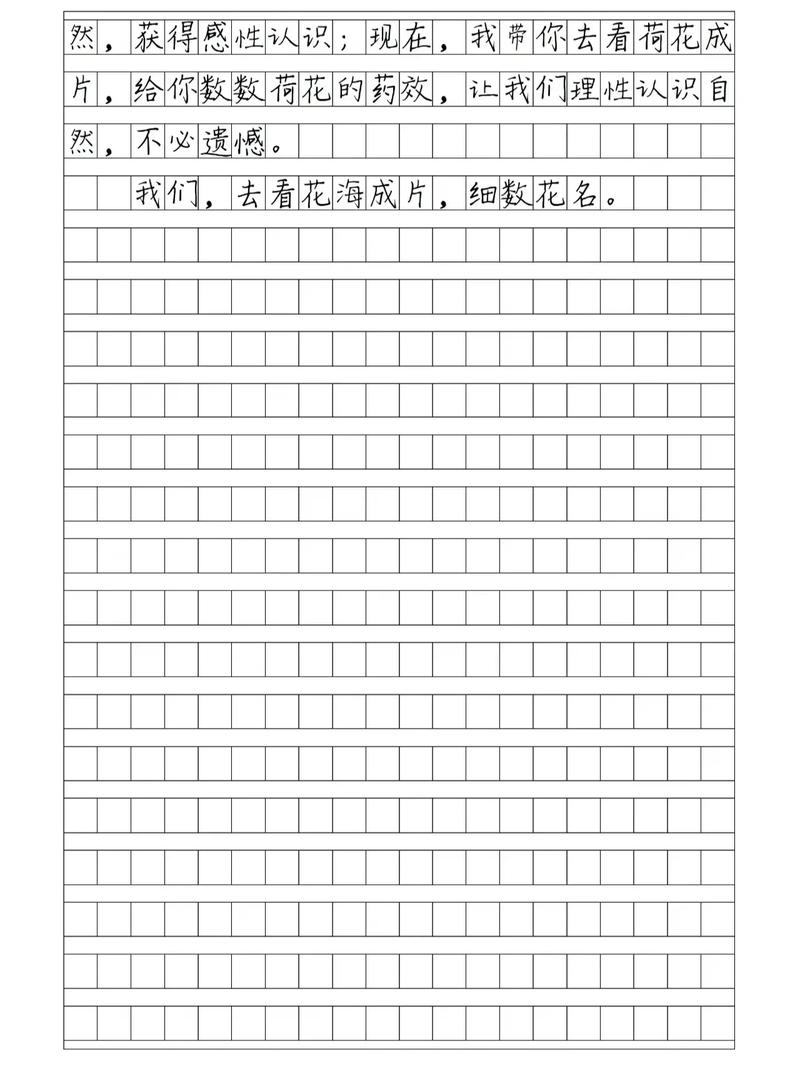 然，获得感性认识；现在，我带你去看荷花成
片，给你数数荷花的药效，让我们理性认识自
然，不必遗憾。
我们，去看花海成片，细数花名。